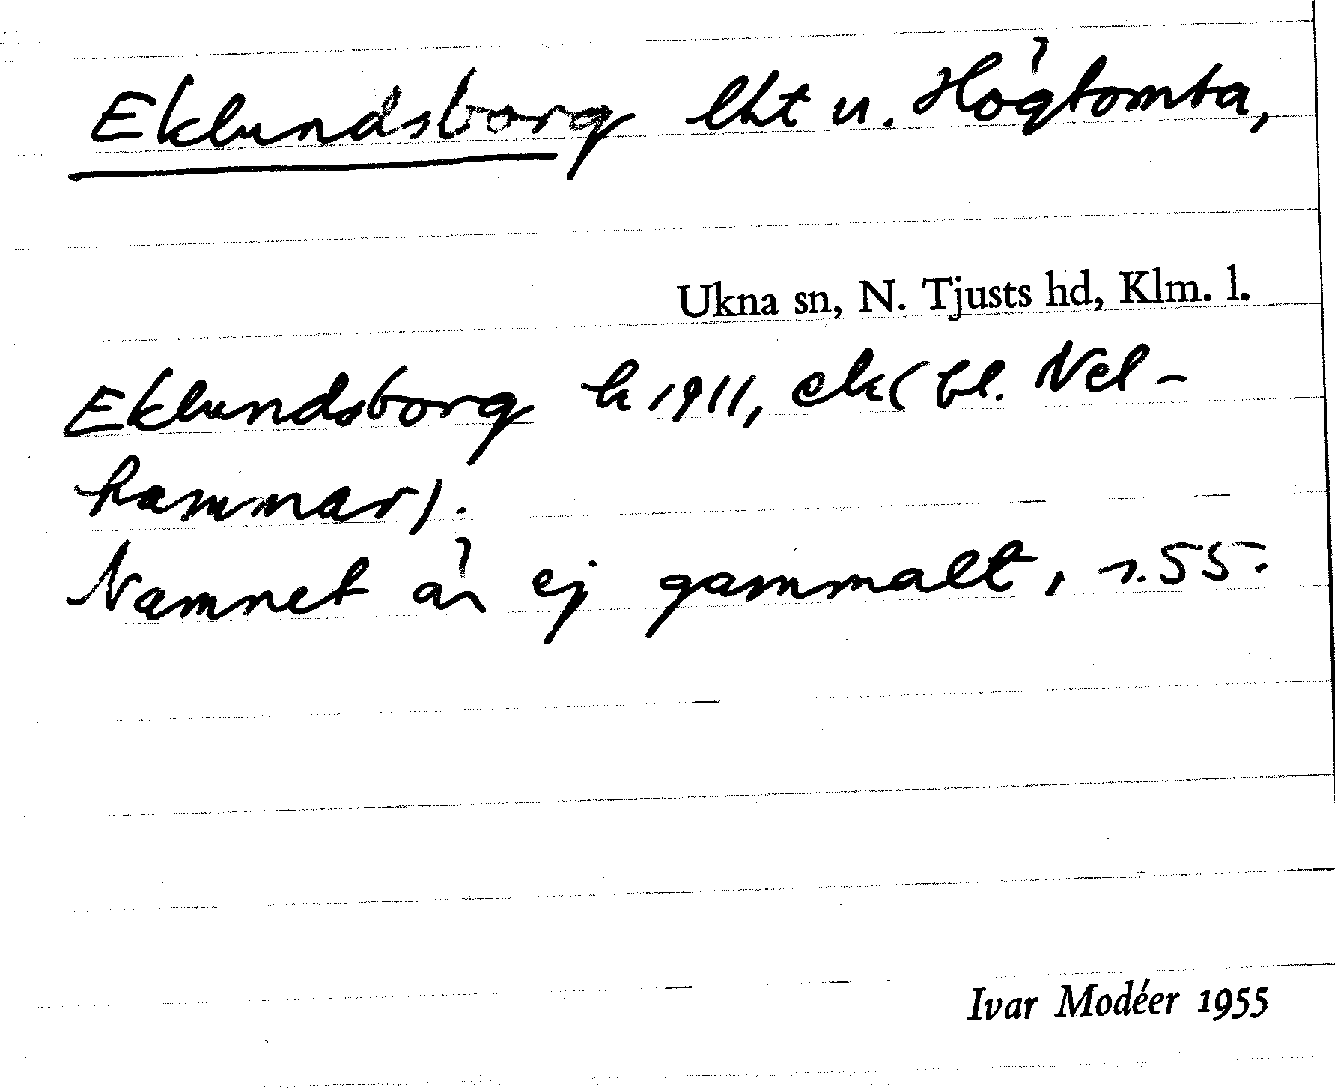 Eklundsborg lht u. Högtomta,
Ukna sn, N. Tjusts hd, Klm. l.
Eklundsborg k 1911, ek ( bl. Vel-
hammar).
Namnet är ej gammalt, s. 55.
Ivar Modéer 1955